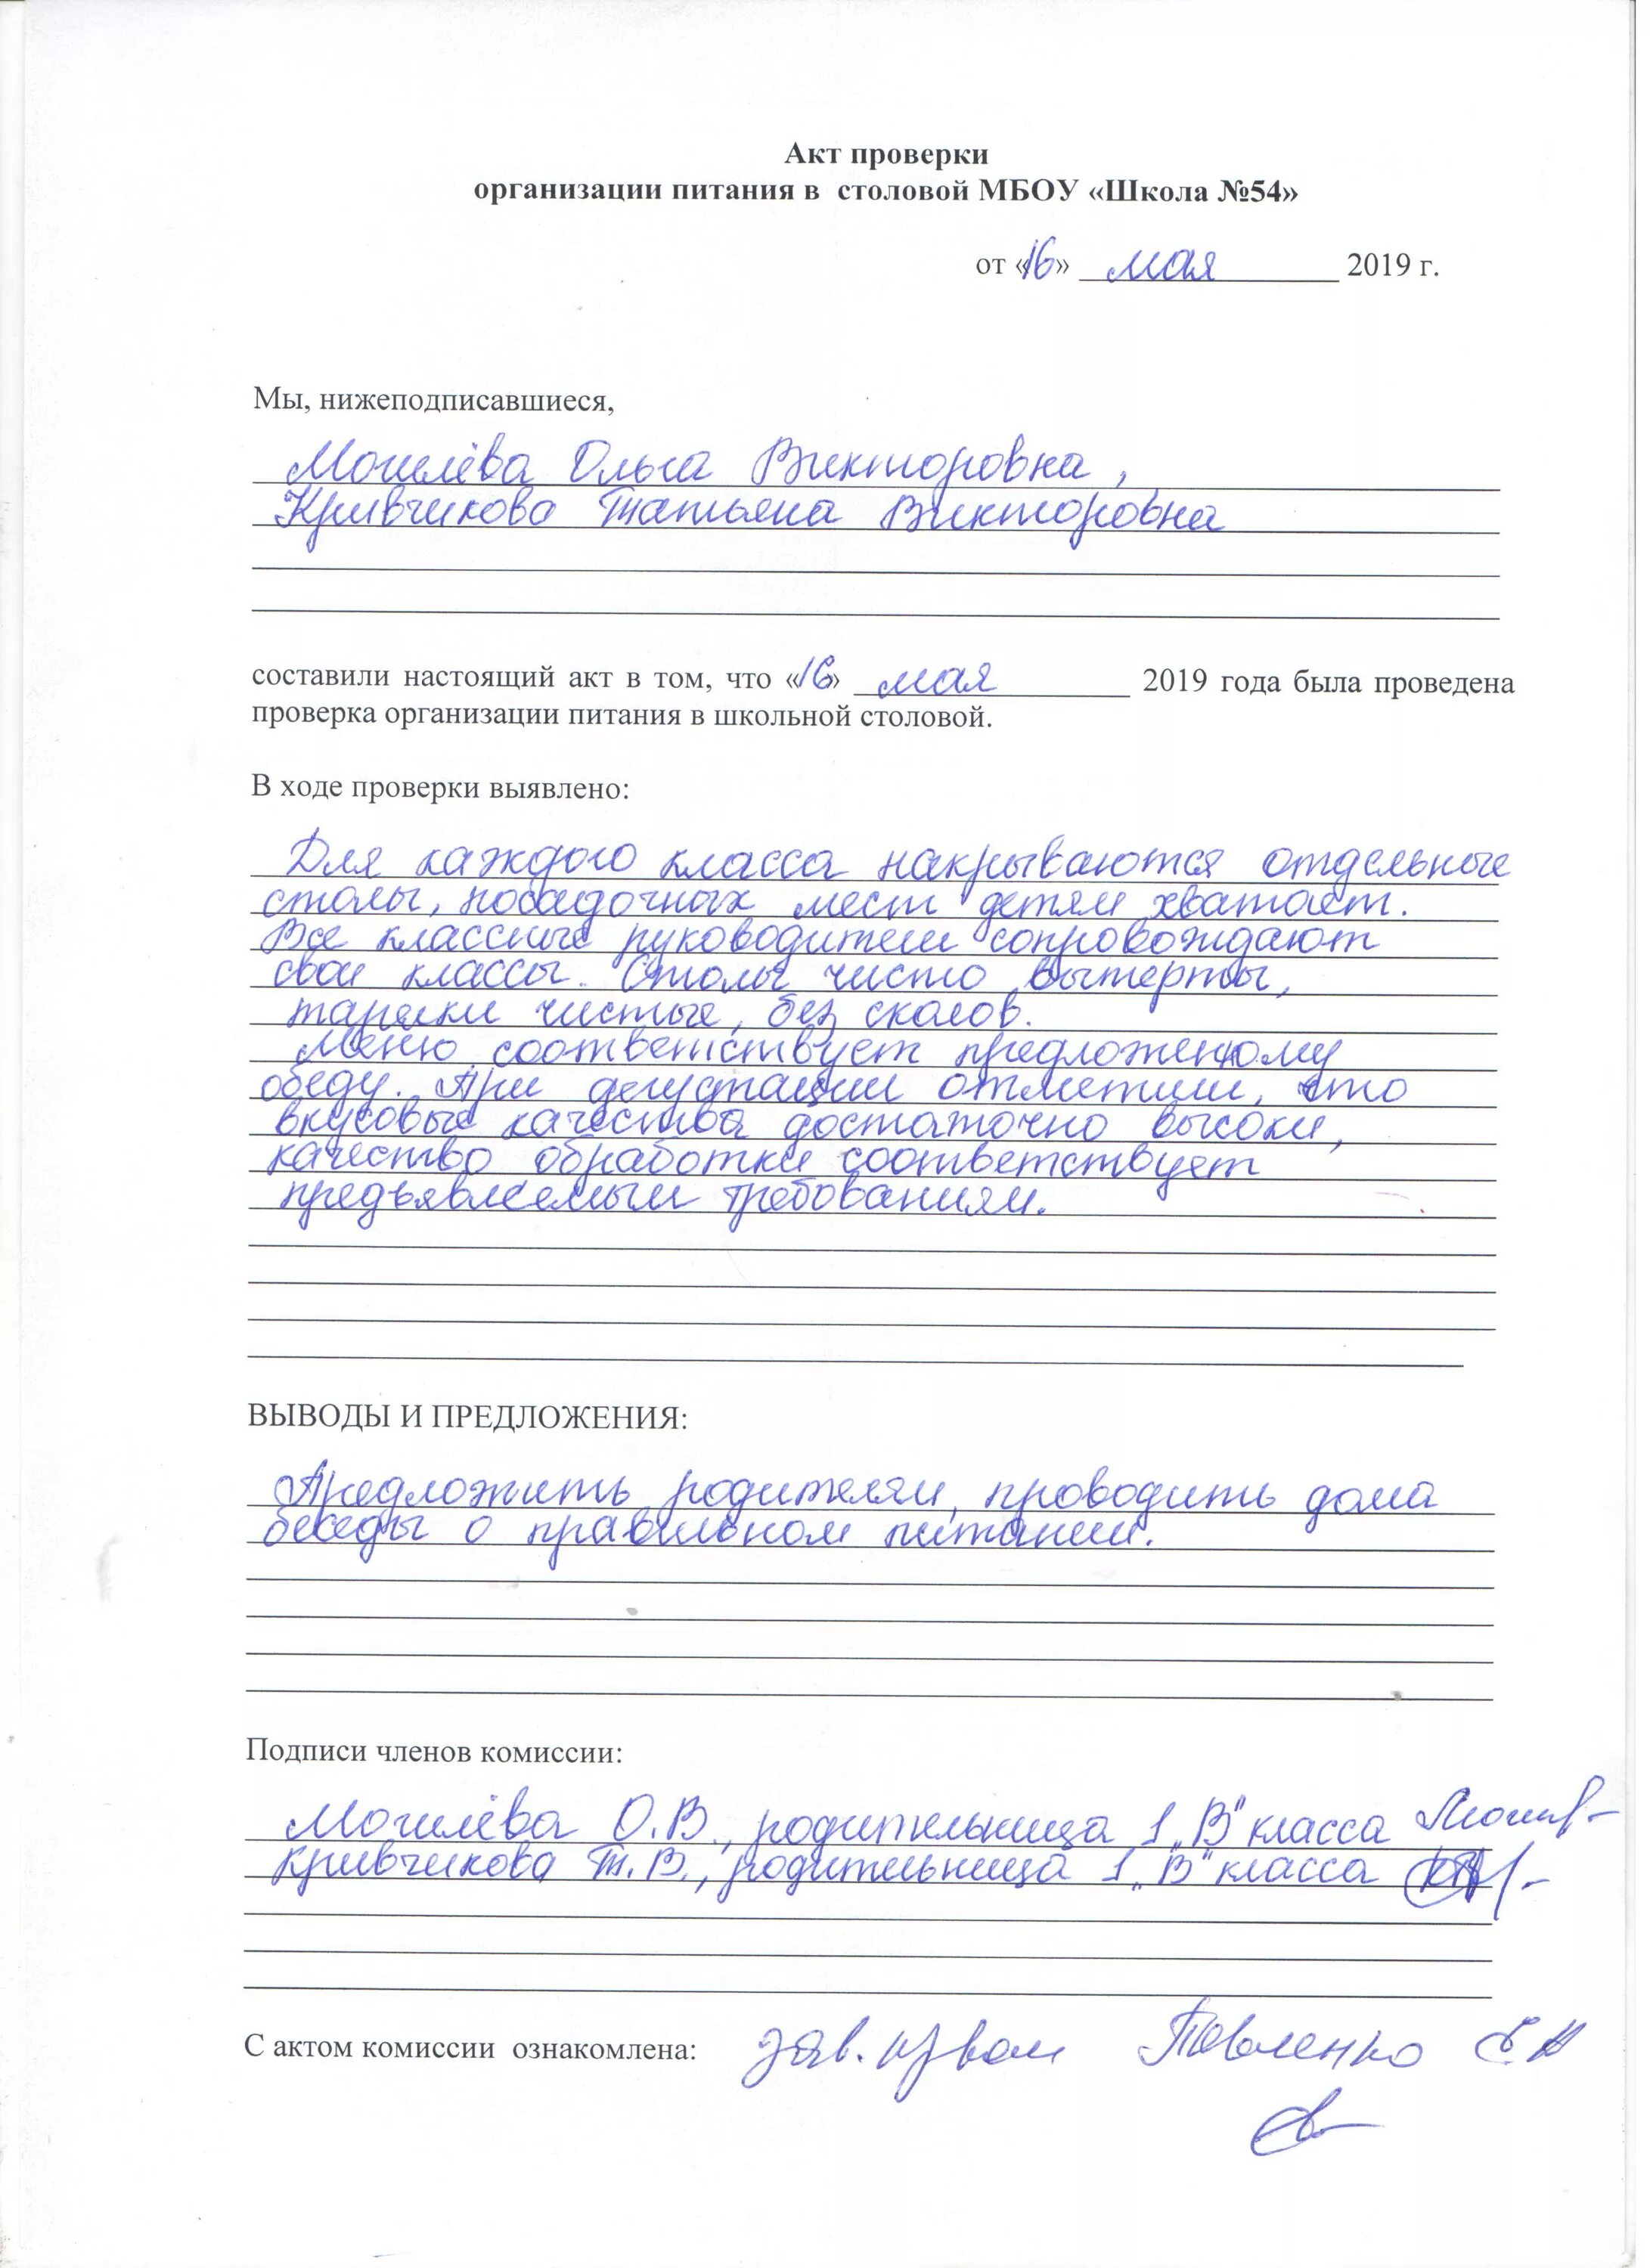 Акт проверки
организации питания в столовой МБОУ «Школа №54»
от «16» мая 2019 г.
Мы, нижеподписавшиеся,
Могилёва Ольга Викторовна,
Кривчикова Татьяна Викторовна
составили настоящий акт в том, что «16» мая 2019 года была проведена
проверка организации питания в школьной столовой.
В ходе проверки выявлено:
Для каждого класса накрываются отдельные
столы, посадочных мест детям хватает.
Все классные руководители сопровождают
свои классы. Столы чисто вытерты,
тарелки чистые, без сколов.
Меню соответствует предложенному
обеду. При дегустации отметили, что
вкусовые качества достаточно высоки,
качество обработки соответствует
предъявляемым требованиям.
ВЫВОДЫ И ПРЕДЛОЖЕНИЯ:
Предложить родителям проводить дома
беседы о правильном питании.
Подписи членов комиссии:
Могилёва О.В., родительница 1 „В" класса
Кривчикова Т.В., родительница 1 „В" класса
С актом комиссии ознакомлена: зав.